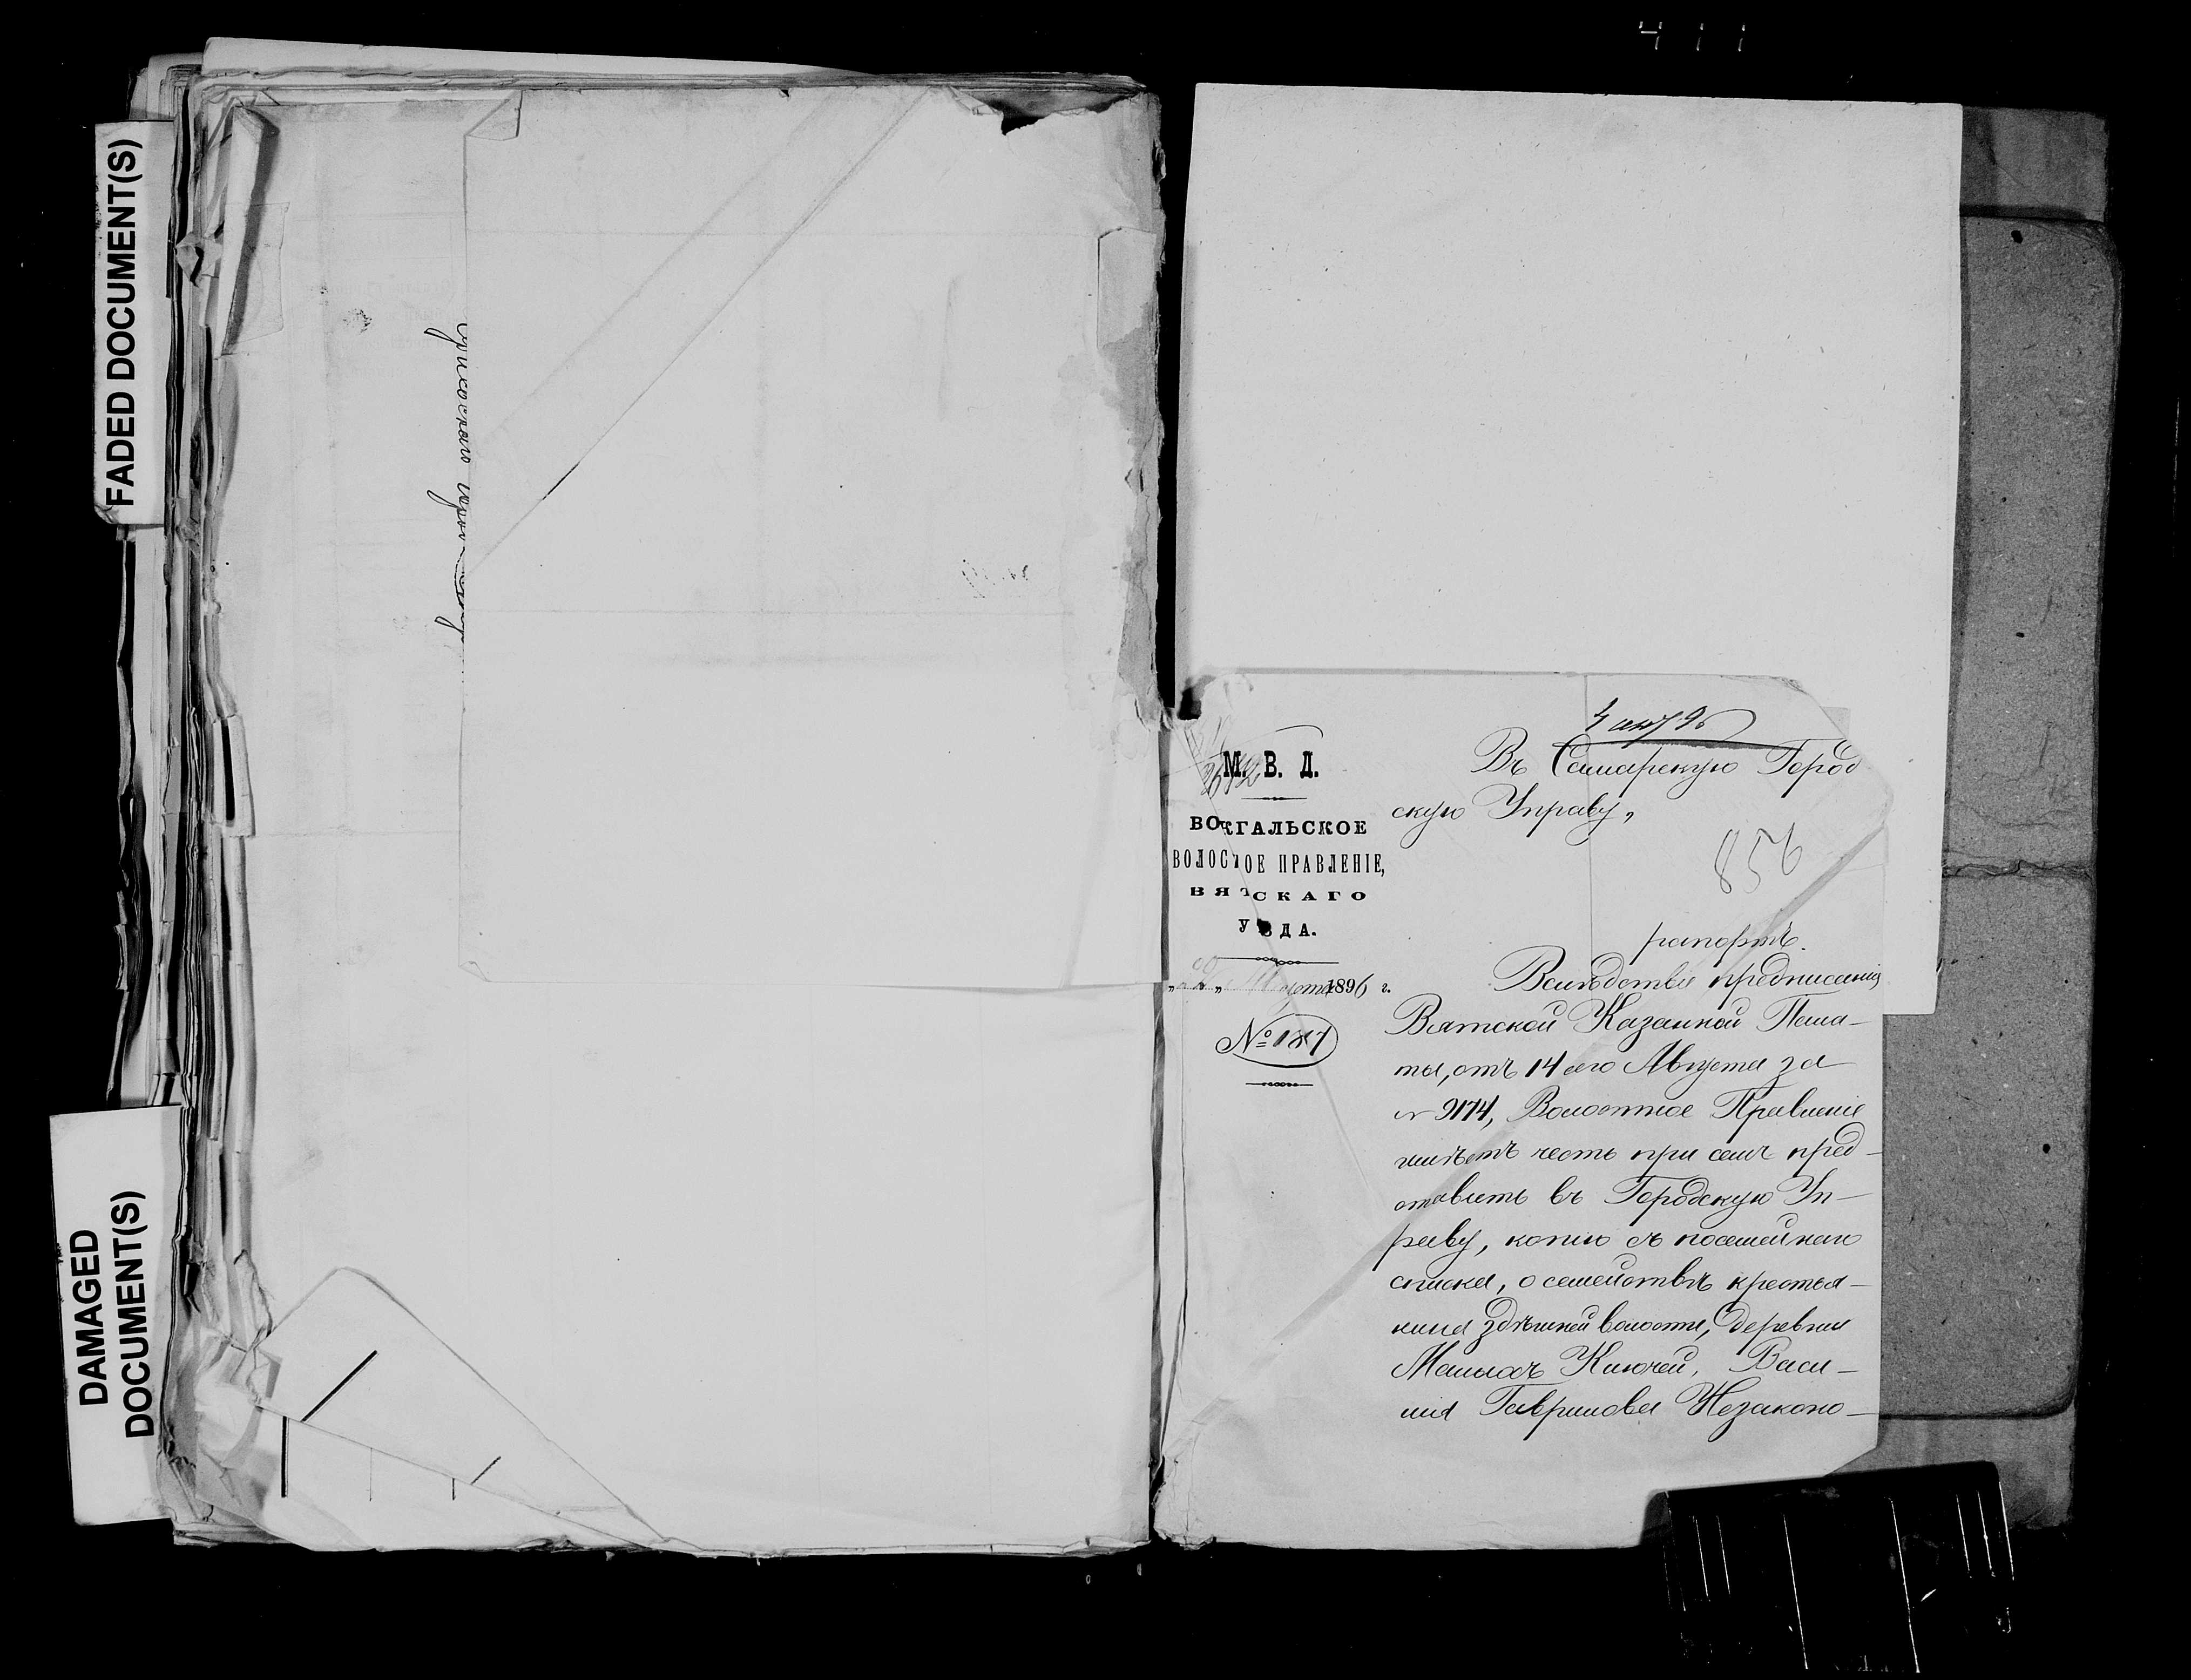 411
FADED DOCUMENT(S)
DAMAGED
DOCUMENT(S)
М. В. Д.
ВОЖГАЛЬСКОЕ
ВОЛОСТНОЕ ПРАВЛЕНІЕ,
ВЯТСКАГО
УѢЗДА.
„22„ Марта 1896 г.
№ 187
Въ Самарскую Город
скую Управу,
856
рапортъ.
Вслѣдствіе предписанія
Вятской Казенной Пала-
ты, отъ 14 сего Августа за
№ 9174, Волостное Правленіе
имѣетъ честь при семъ пред-
ставить въ Городскую Уп-
раву, копію съ посемейнаго
списка, о семействѣ крестья-
нина здѣшней волости, деревни
Малыхъ Ключей, Васи-
лія Гаврилова Незаконо-